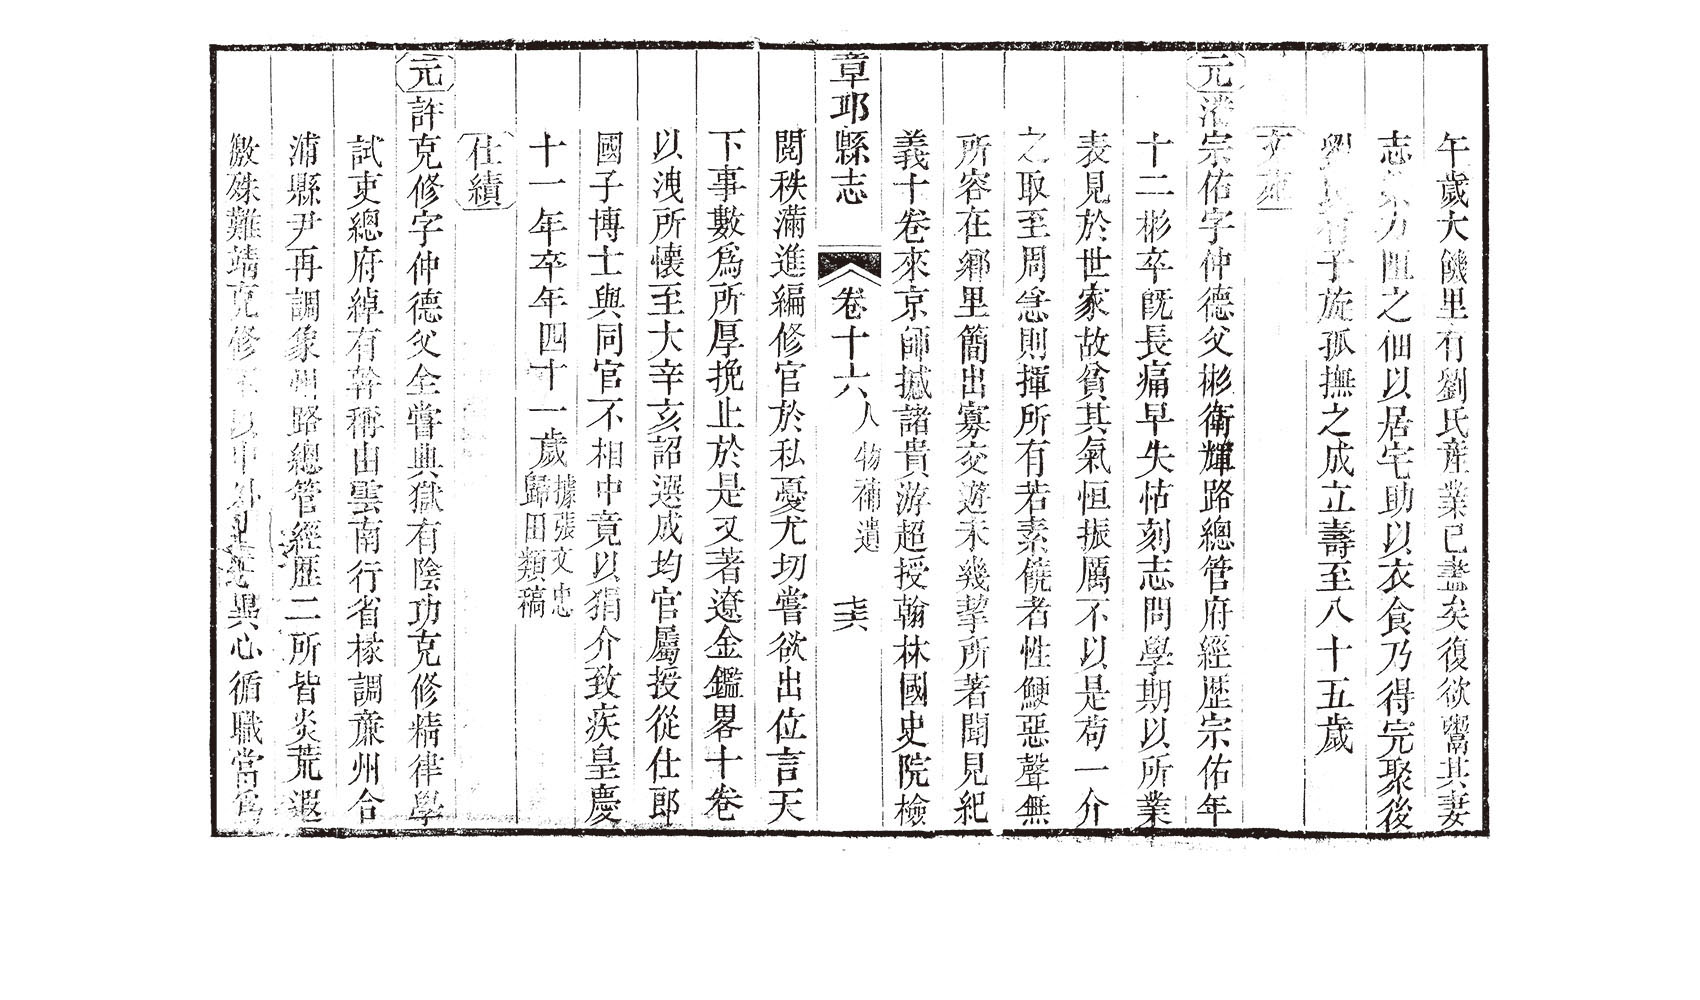 午歲大饑里有劉氏産業已盡矣復欲鬻其妻
志 力阻之佃以居宅助以衣食乃得完聚後
劉 子旋孤撫之成立壽至八十五歲
文苑
元 潘宗佑字仲德父彬衛輝路總管府經歷宗佑年
十二彬卒旣長痛早失怙刻志問學期以所業
表見於世家故貧其氣恒振厲不以是苟一介
之取至周急則揮所有若素饒者性鯁惡聲無
所容在鄉里簡出寡交遊未幾挈所著聞見紀
義十卷來京師撼諸貴游超授翰林國史院檢
章邱縣志 卷十六 人物補遺 七十六
閱秩滿進編修官於私憂尤切嘗欲出位言天
下事數爲所厚挽止於是又著遼金鑑畧十卷
以洩所懷至大辛亥詔選成均官屬授從仕郎
國子博士與同官不相中竟以狷介致疾皇慶
十一年卒年四十一歲 據張文忠歸田類稿
仕績
元 許克修字仲德父全嘗典獄有陰功克修精律學
試吏總府綽有幹稱由雲南行省椽調亷州合
浦縣尹再調象州路總管經歷二所皆炎荒遐
徼殊難靖克修不以中外 異心循職當爲